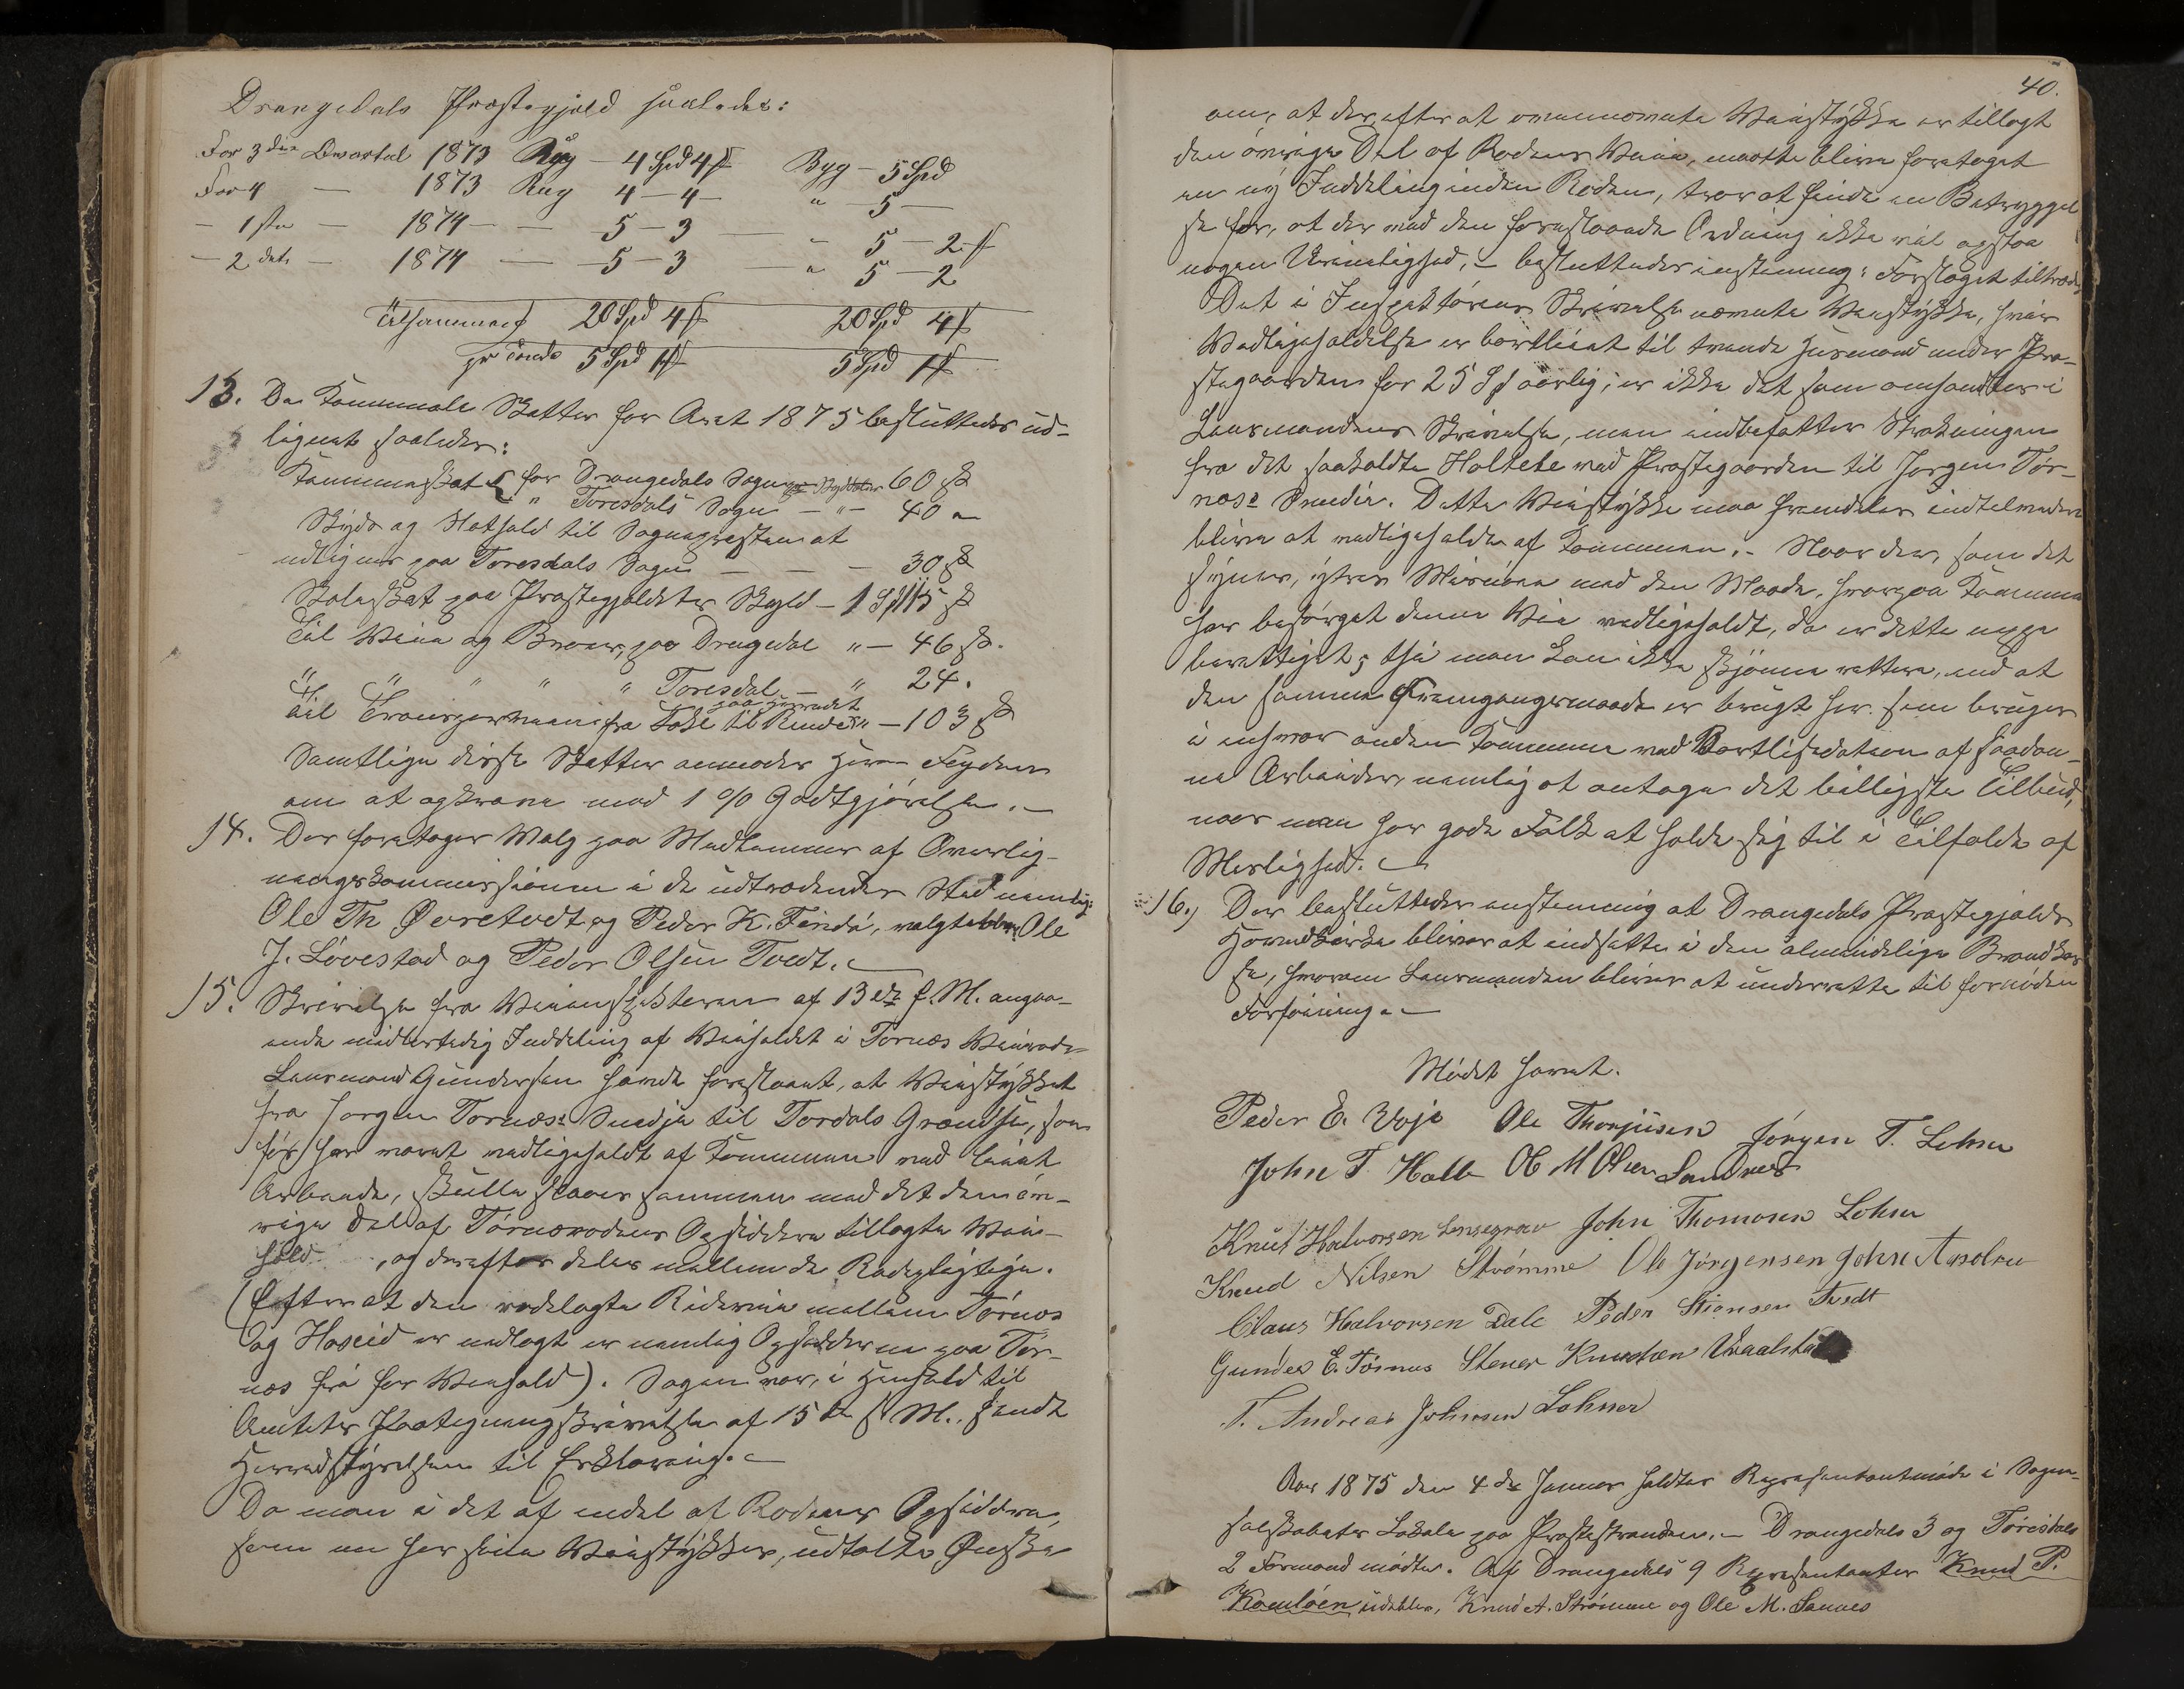 Drangedals Præstegjeld saaledes:
For 3die Qvartal 1873 Rug – 4 Spd 4 ß Byg – 5 Spd
For 4 — 1873 Rug 4 – 4 – " – 5 –
– 1ste – 1874 – – 5 – 3 – – 5 – 2 ß
– 2det – 1874 – 5 – 3 " 5 – 2
Tilsammen 20 Spd 4 ß 20 Spd 4 ß
pr Tønde 5 Spd 1 ß 5 Spd 1 ß
13. De Kommunale Skatter for Aaret 1875 besluttedes ud-
lignet saaledes:
Kommuneskat for Drangedals Sogn pr Skylddaler 60 ß
" Torresdals Sogn – " – 40 "
Skyds og Hesthold til Sognepræsten at
udlignes paa Torresdals Sogn – – – 30 ß
Skoleskat paa Præstegjeldets Skyld – 1 Spd 15 ß
Til Veie og Broer, paa Drangedal " – 46 ß.
" " " " " Torresdal – " 24.
paa Herredet
Til fra Toke til " – 103 ß
Samtlige disse Skatter anmodes Herr Fogden
om at opkræve mod 1 % Godtgjørelse. –
14. Der foretoges Valg paa Medlemmer af Overlig-
ningskommissionen i de udtrædendes Sted nemlig:
Ole Th Øvretvedt og Peder K. Findø, valgte blev Ole
J. Løvestad og Peder Olsen Tvedt. –
15. Skrivelse fra Veiinspekteuren af 13de f. M. angaa-
ende midlertidig Inddeling af Veiholdet i Tørnæs Veirode
Lensmand Gundersen havde foreslaaet, at Veistykket
fra Jørgen Tørnæs's Smedje til Tordals Grændse, som
før har været vedligeholdt af Kommunen ved leiet
Arbeide, skulle slaaes sammen med det den øv-
rige Del af Tørnæsrodens Opsiddere tillagte Vei-
hold , og derefter deles mellem de Rodepligtige.
(Efter at den nedlagte Ridevei mellem Tørnæs
og Hoseid er nedlagt er nemlig Opsidderne paa Tør-
næs fri for Veihold). Sagen var, i Henhold til
Amtets Paategningsskrivelse af 15de s. M., sendt
Herredstyrelsen til Erklæring. –
Da man i det af endel af Rodens Opsiddere,
som nu har sine Veistykker, udtalte Ønske
40.
om, at der, efter at ovennævnte Veistykke er tillagt
den øvrige Del af Rodens Veie, maatte blive foretaget
en ny Inddeling inden Roden, tror at finde en Betryggel
se for, at der med den foreslaaede Ordning ikke vil opstaa
nogen Urimelighed, – besluttedes enstemmig: Forslaget tiltrædes
Det i Inspektørens Skrivelse nævnte Veistykke, hvis
Vedligeholdelse er bortleiet til tvende Husmænd under Præ-
stegaarden for 25 Spd aarlig, er ikke det som omhandles i
Lensmandens Skrivelse, men indbefatter Strækningen
fra det saakaldte Holtete ved Præstegaarden til Jørgen Tør-
næs's Smedie. Dette Veistykke maa fremdeles indtilvidere
blive at vedligeholde af Kommunen. – Naar der, som det
synes, ytres Misnøie med den Maade, hvorpaa Kommunen
har besørget denne Vei vedligeholdt, da er dette neppe
berettiget; thi man kan ikke skjønne rettere, end at
den samme Fremgangsmaade er brugt her som bruges
i enhver anden Kommune ved Bortlisitation af saadan-
ne Arbeider, nemlig at antage det billigste Tilbud,
naar man har gode Folk at holde sig til i Tilfælde af
Mislighed. –
16. Der besluttedes enstemmig at Drangedals Præstegjelds
Hovedkirke bliver at indsætte i den almindelige Brandkas
se, hvorom Lensmanden bliver at underrette til fornøden
Forføining. –
Mødet hævet.
Peder E. Voje Ole Thorjussen Jørgen T. Lohne
John T. Holte Ole M Olsen Sandnes
Knut Halvorsen Lensegrav John Thomesen Lohne
Knud Nilsen Strømme Ole Jørgensen John Aasolsen
Claus Halvorsen Dale Peder Stiansen Tvedt
Gunder E. Tørnæs Stener Knudsen Vraalstad
T. Andreas Johnsen Lohner
Aar 1875 den 4de Januar holdtes Repræsentantmøde i Sogne-
selskabets Lokale paa Præstestranden. – Drangedals 3 og Tørrisdals
2 Formænd mødte. Af Drangedals 9 Repræsentanter Knud P.
Kamløen udeblev, Knud A. Strømme og Ole M. Sannes